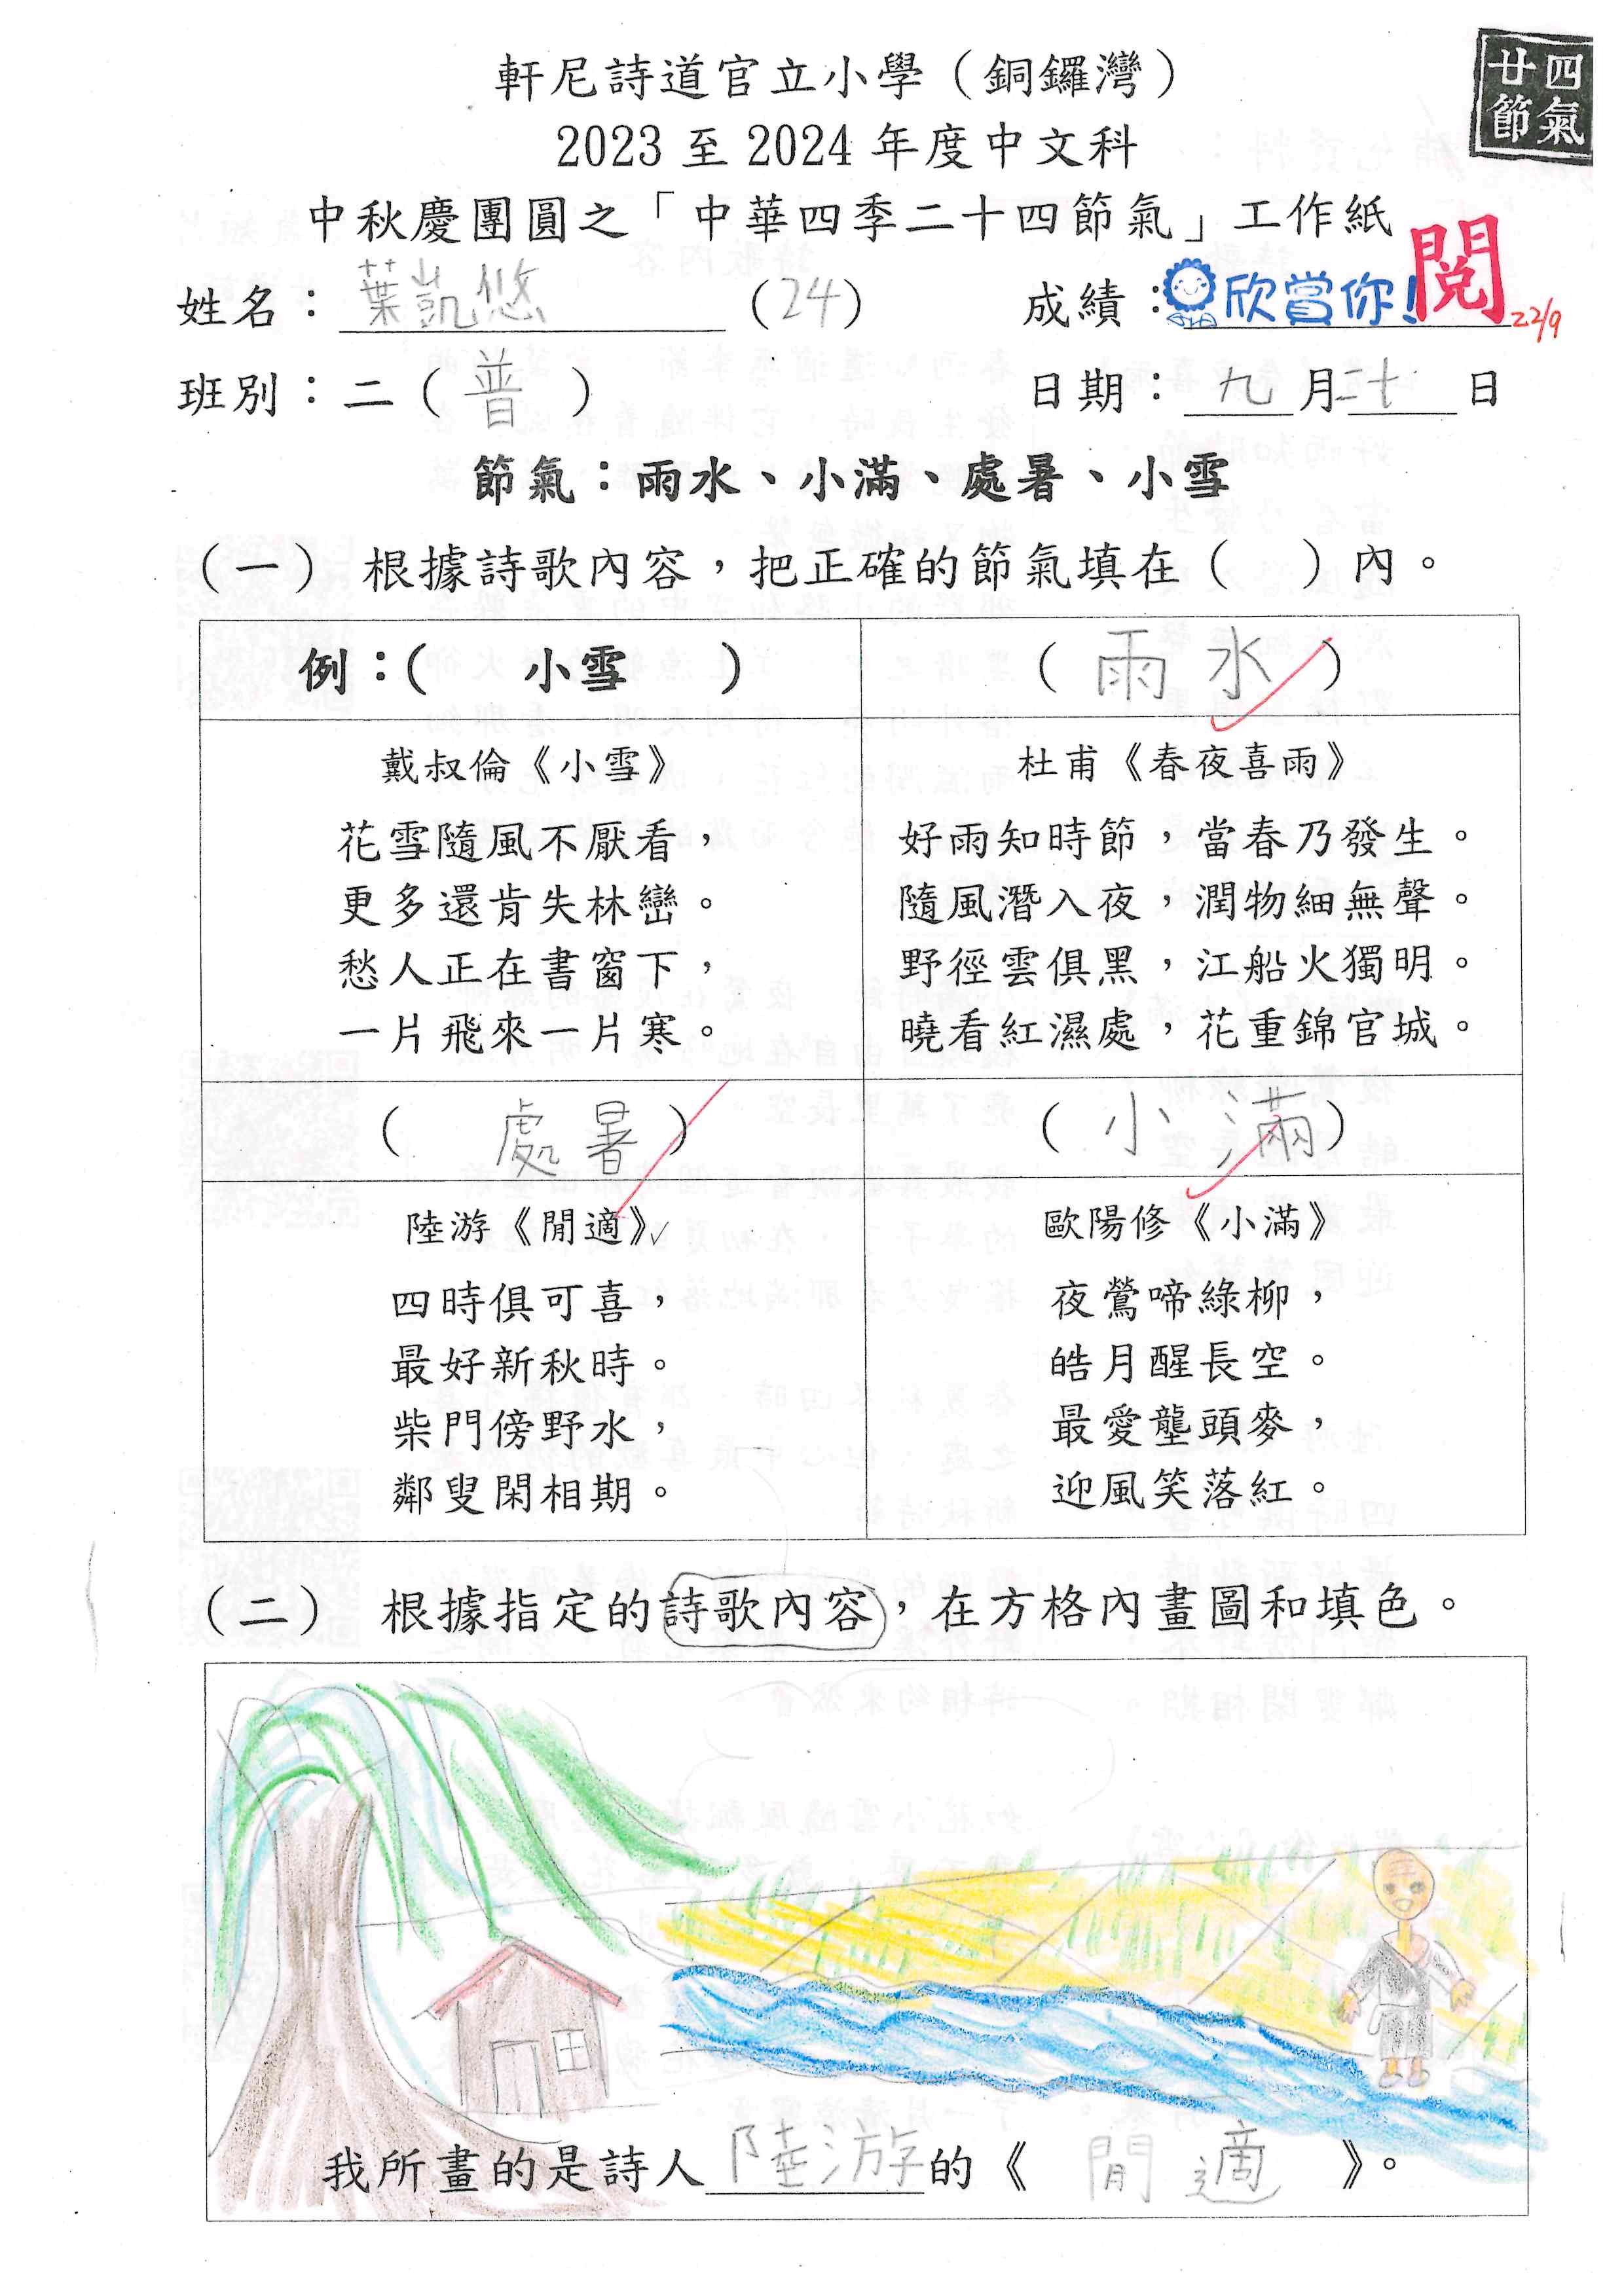 廿四
節氣
軒尼詩道官立小學（銅鑼灣）
2023 至 2024 年度中文科
中秋慶團圓之「中華四季二十四節氣」工作紙
姓名：葉凱悠（24） 成績：欣賞你！閱 22/9
班別：二（普） 日期：九月二十日
節氣：雨水、小滿、處暑、小雪
（一） 根據詩歌內容，把正確的節氣填在（ ）內。
例：( 小雪 )
戴叔倫《小雪》
花雪隨風不厭看，
更多還肯失林巒。
愁人正在書窗下，
一片飛來一片寒。
（雨水）
杜甫《春夜喜雨》
好雨知時節，當春乃發生。
隨風潛入夜，潤物細無聲。
野徑雲俱黑，江船火獨明。
曉看紅濕處，花重錦官城。
（處暑）
陸游《閒適》
四時俱可喜，
最好新秋時。
柴門傍野水，
鄰叟閑相期。
（小滿）
歐陽修《小滿》
夜鶯啼綠柳，
皓月醒長空。
最愛壟頭麥，
迎風笑落紅。
（二） 根據指定的詩歌內容，在方格內畫圖和填色。
我所畫的是詩人陸游的《閒適》。